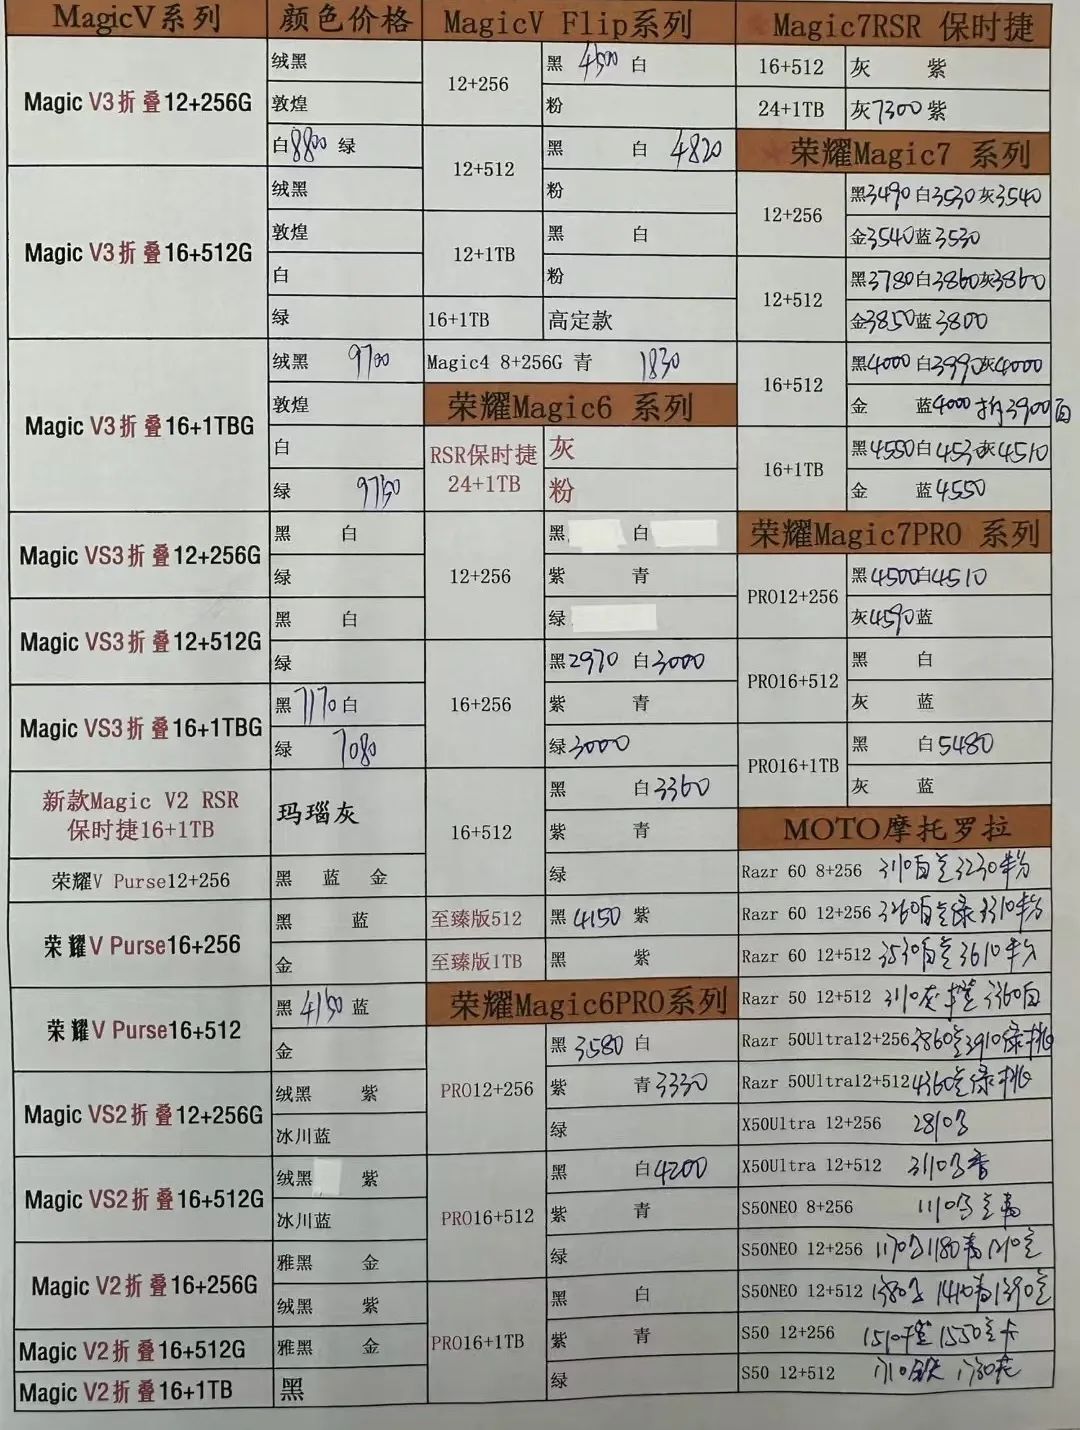 MagicV系列 颜色价格
Magic V3折叠12+256G
绒黑
敦煌
白8800 绿
Magic V3折叠16+512G
绒黑
敦煌
白
绿
Magic V3折叠16+1TBG
绒黑 9700
敦煌
白
绿 9750
Magic VS3折叠12+256G
黑 白
绿
Magic VS3折叠12+512G
黑 白
绿
Magic VS3折叠16+1TBG
黑7170白
绿 7080
新款Magic V2 RSR
保时捷16+1TB
玛瑙灰
荣耀V Purse12+256
黑 蓝 金
荣耀V Purse16+256
黑 蓝
金
荣耀V Purse16+512
黑4150蓝
金
Magic VS2折叠12+256G
绒黑 紫
冰川蓝
Magic VS2折叠16+512G
绒黑 紫
冰川蓝
Magic V2折叠16+256G
雅黑 金
绒黑 紫
Magic V2折叠16+512G
雅黑 金
Magic V2折叠16+1TB
黑
MagicV Flip系列
12+256
黑 4500 白
粉
12+512
黑 白 4820
粉
12+1TB
黑 白
粉
16+1TB 高定款
Magic4 8+256G 青 1830
荣耀Magic6 系列
RSR保时捷
24+1TB
灰
粉
12+256
黑 白
紫 青
绿
16+256
黑2970 白3000
紫 青
绿3000
16+512
黑 白3360
紫 青
绿
至臻版512 黑4150 紫
至臻版1TB 黑 紫
荣耀Magic6PRO系列
PRO12+256
黑3580 白
紫 青3330
绿
PRO16+512
黑 白4200
紫 青
绿
PRO16+1TB
黑 白
紫 青
绿
Magic7RSR 保时捷
16+512 灰 紫
24+1TB 灰7300紫
荣耀Magic7 系列
12+256
黑3490白3530灰3540
金3540蓝3530
12+512
黑3780白3860灰3860
金3850蓝3800
16+512
黑4000白3990灰4000
金 蓝4000 3900
16+1TB
黑4550白4530灰4510
金 蓝4550
荣耀Magic7PRO 系列
PRO12+256
黑4500白4510
灰4590蓝
PRO16+512
黑 白
灰 蓝
PRO16+1TB
黑 白5480
灰 蓝
MOTO摩托罗拉
Razr 60 8+256 3230粉
Razr 60 12+256 绿 粉
Razr 60 12+512 3610粉
Razr 50 12+512 3110灰 3360白
Razr 50Ultra12+256 3860 3910绿 桃
Razr 50Ultra12+512 4360 绿 桃
X50Ultra 12+256 2810
X50Ultra 12+512 3110
S50NEO 8+256 1110
S50NEO 12+256 1170 1180 1210
S50NEO 12+512 1380 1410 1390
S50 12+256 1510 1550
S50 12+512 1710 1730